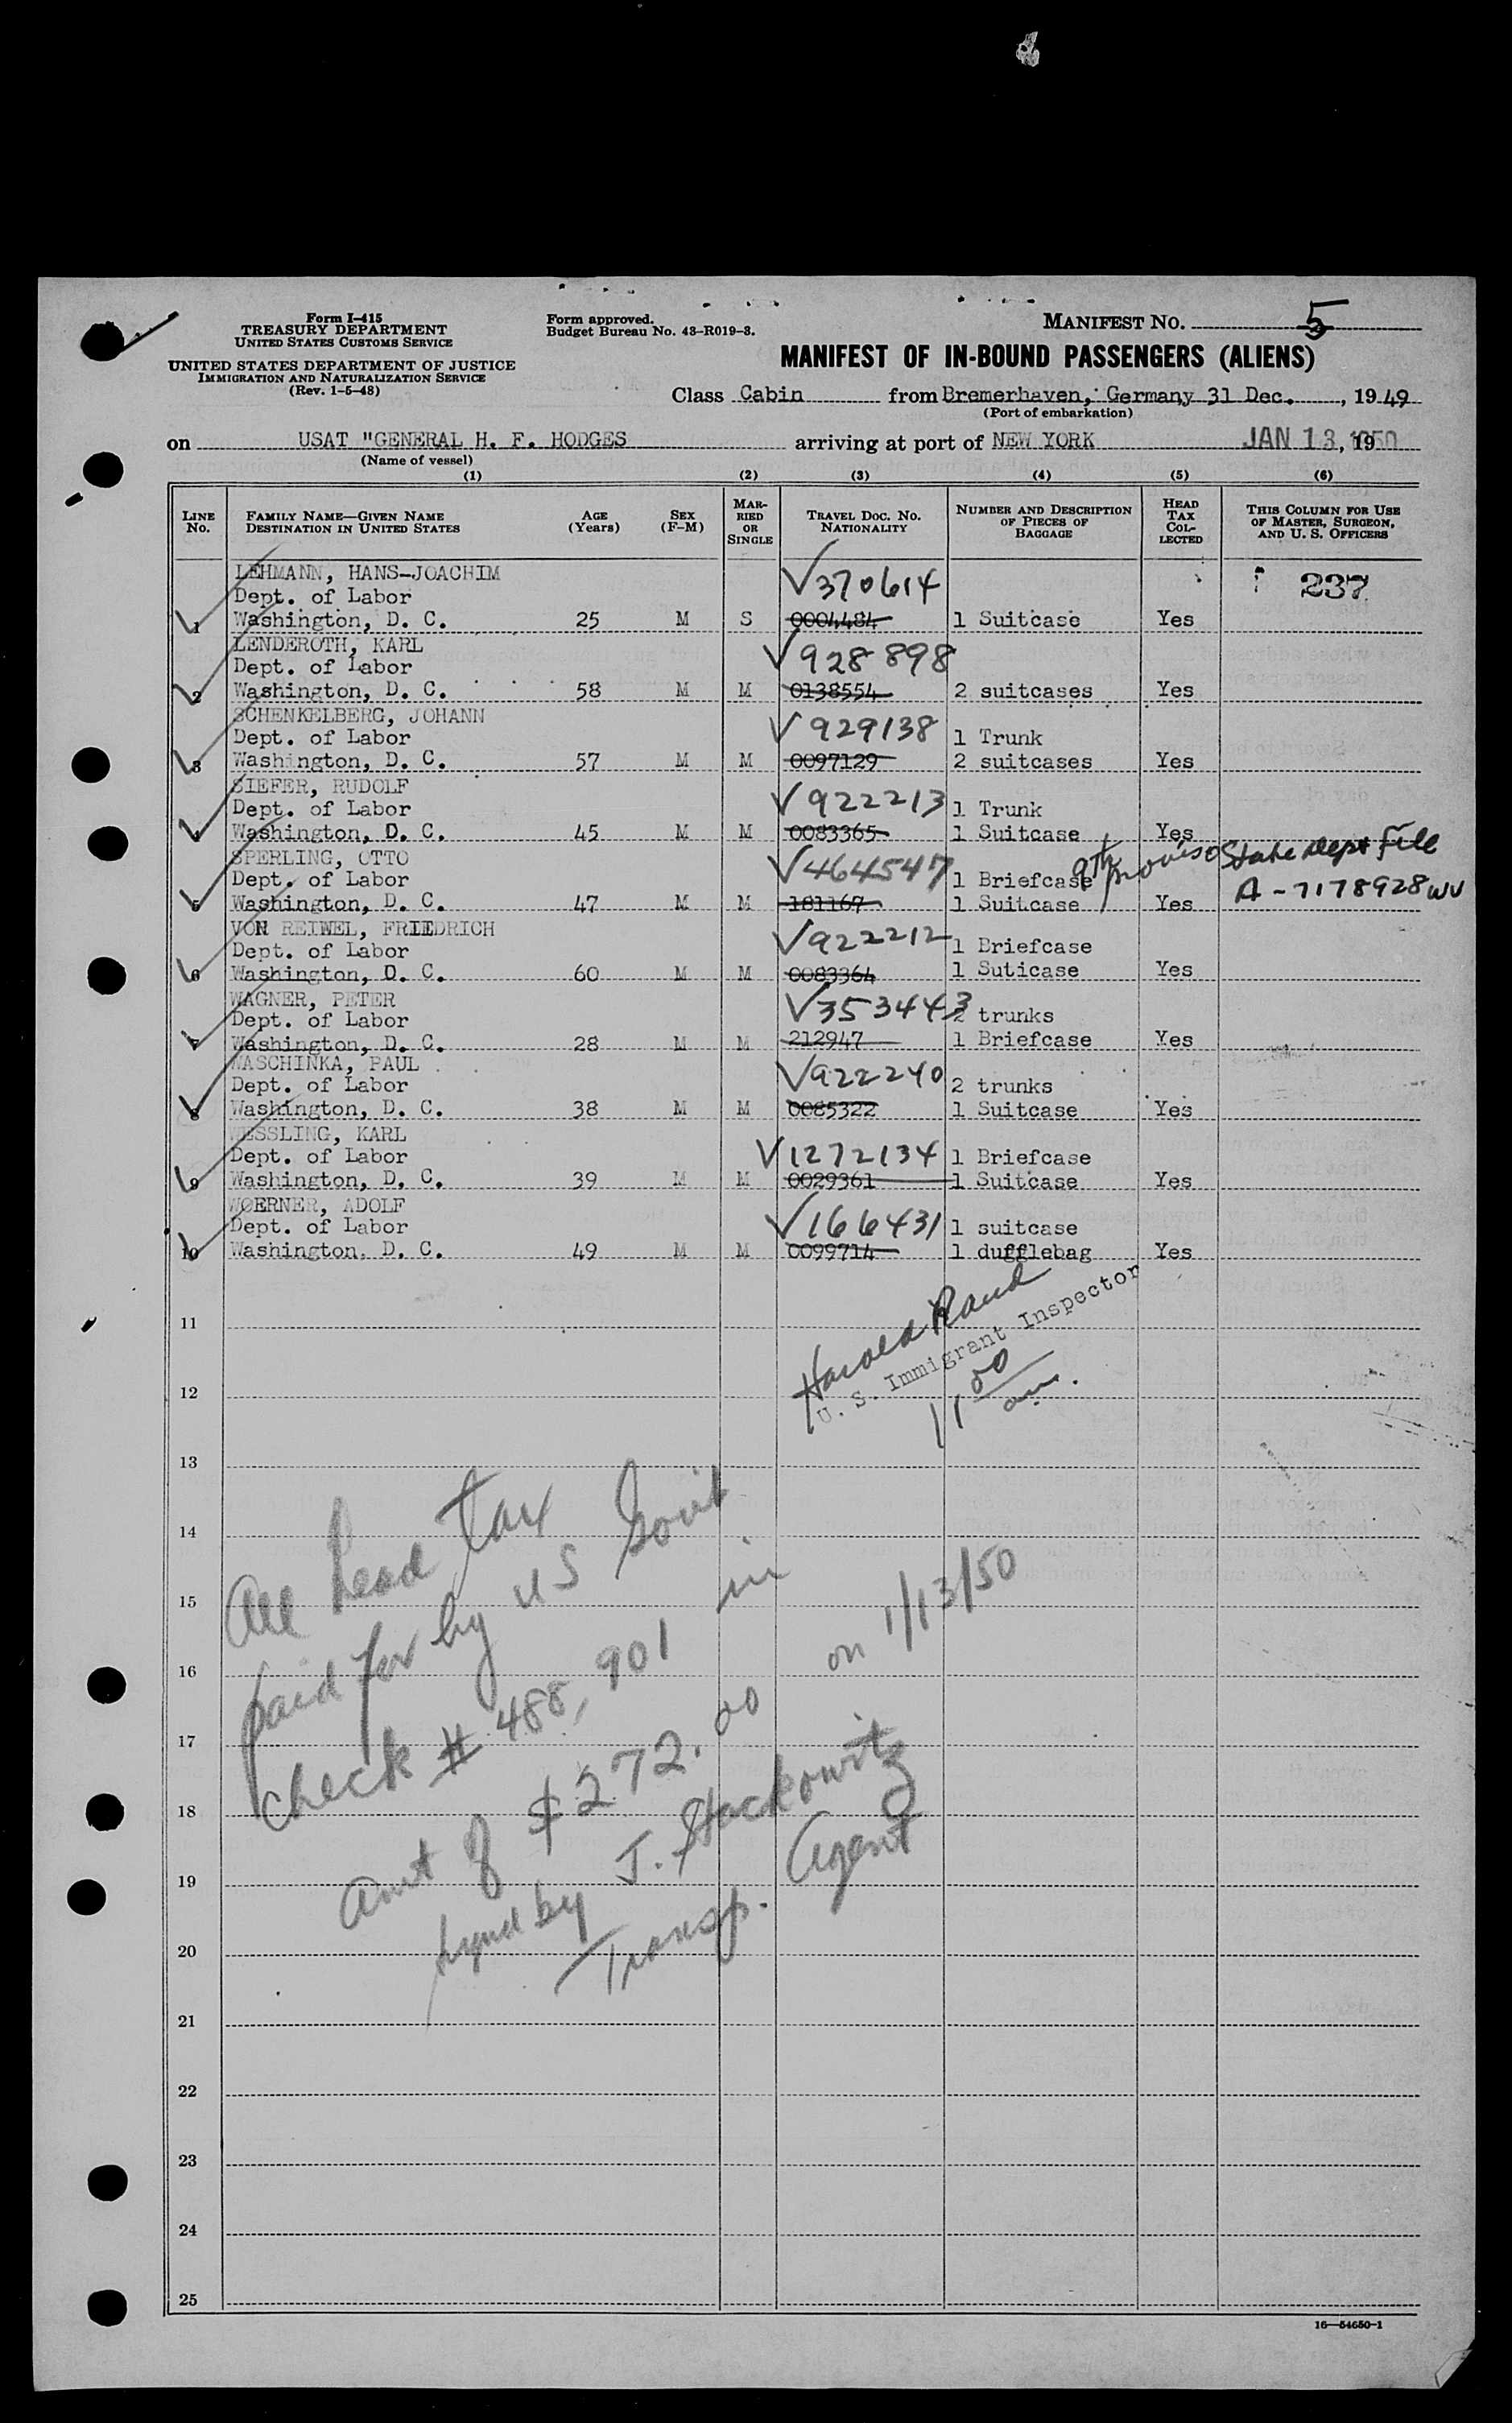 Form I-415
TREASURY DEPARTMENT
UNITED STATES CUSTOMS SERVICE
UNITED STATES DEPARTMENT OF JUSTICE
IMMIGRATION AND NATURALIZATION SERVICE
(Rev. 1-5-48)
Form approved.
Budget Bureau No. 43-R019-3.
MANIFEST NO. 5
MANIFEST OF IN-BOUND PASSENGERS (ALIENS)
Class Cabin from Bremerhaven, Germany 31 Dec., 1949
(Port of embarkation)
on USAT "GENERAL H. F. HODGES arriving at port of NEW YORK JAN 13, 1950
(Name of vessel)
(1) (2) (3) (4) (5) (6)
LINE NO. FAMILY NAME—GIVEN NAME DESTINATION IN UNITED STATES AGE (Years) SEX (F-M) MARRIED OR SINGLE TRAVEL DOC. NO. NATIONALITY NUMBER AND DESCRIPTION OF PIECES OF BAGGAGE HEAD TAX COLLECTED THIS COLUMN FOR USE OF MASTER, SURGEON, AND U. S. OFFICERS
LEHMANN, HANS-JOACHIM V370614 237
Dept. of Labor
1 Washington, D. C. 25 M S 0004484 1 Suitcase Yes
LENDEROTH, KARL V928898
Dept. of Labor
2 Washington, D. C. 58 M M 0138554 2 suitcases Yes
SCHENKELBERG, JOHANN V929138
Dept. of Labor 1 Trunk
3 Washington, D. C. 57 M M 0097129 2 suitcases Yes
SIEFER, RUDOLF V922213
Dept. of Labor 1 Trunk
4 Washington, D. C. 45 M M 0083365 1 Suitcase Yes
SPERLING, OTTO V464547 9th proviso State Dept File
Dept. of Labor 1 Briefcase A-7178928 WV
5 Washington, D. C. 47 M M 181167 1 Suitcase Yes
VON REIWEL, FRIEDRICH V922212
Dept. of Labor 1 Briefcase
6 Washington, D. C. 60 M M 0083364 1 Suticase Yes
WAGNER, PETER V353443
Dept. of Labor 2 trunks
7 Washington, D. C. 28 M M 212947 1 Briefcase Yes
WASCHINKA, PAUL V922240
Dept. of Labor 2 trunks
8 Washington, D. C. 38 M M 0085322 1 Suitcase Yes
WESSLING, KARL V1272134
Dept. of Labor 1 Briefcase
9 Washington, D. C. 39 M M 0029361 1 Suitcase Yes
WOERNER, ADOLF V166431
Dept. of Labor 1 suitcase
10 Washington, D. C. 49 M M 0099714 1 dufflebag Yes
Harold Rand
U. S. Immigrant Inspector
11 00 am.
11
12
13
14
15
16
17
18
19
20
21
22
23
24
25
All head tax
paid for by US Govt
check # 488,901 in
amt of $272.00 on 1/13/50
signed by J. Stackowitz
Transp. Agent
16—54650-1